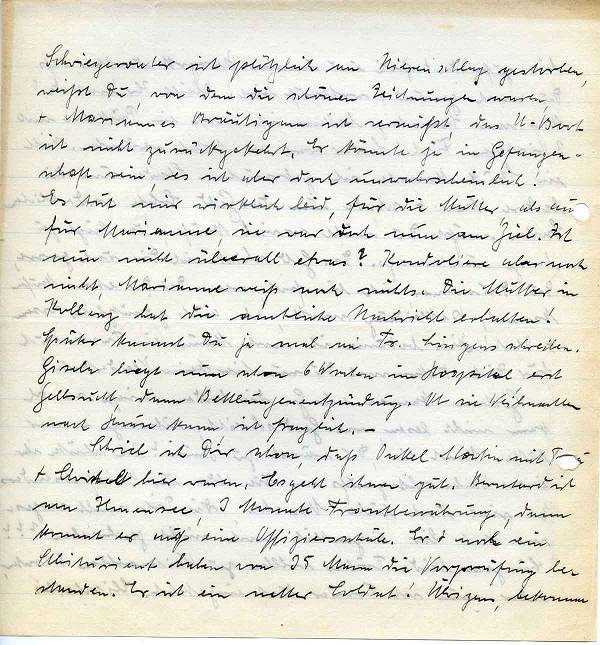 Schwiegervater ist plötzlich an Nierenschlag gestorben,
weißt Du, von dem die schönen Zeichnungen waren,
+ Mariannes Bräutigam ist vermißt, das U-Boot
ist nicht zurückgekehrt. Er könnte ja in Gefangen-
schaft sein, es ist aber doch unwahrscheinlich.
Es tut mir wirklich leid, für die Mutter als auch
für Marianne, sie war doch nun am Ziel. Ist
nun nicht überall etwas? Kondoliere aber noch
nicht, Marianne weiß noch nichts. Die Mutter in
hat die amtliche Nachricht erhalten!
Später kannst Du ja mal an Fr. Lingens schreiben.
Gisela liegt nun schon 6 Wochen im Hospital, erst
Gelbsucht, dann Ob sie Weihnachten
nach Hause kann ist fraglich. –
Schrieb ich Dir schon, daß Onkel Martin mit
+ Christel hier waren. Es geht ihnen gut. Bernhard ist
am Ilmensee, 3 Monate Frontbewährung, dann
kommt er auf eine Offiziersschule. Er + noch ein
Abiturient haben von 35 Mann die Vorprüfung be-
standen. Er ist ein netter Soldat! Übrigens, bekommen